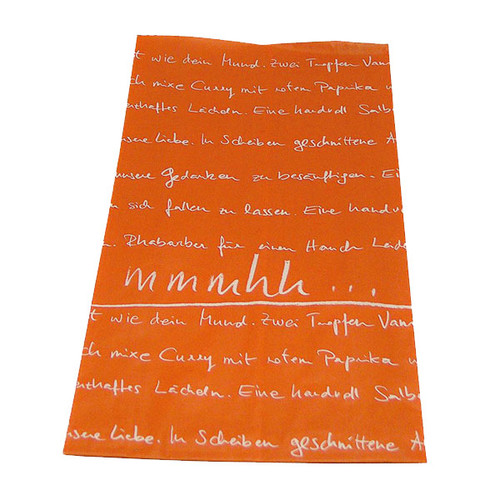 t wie dein Mund. Zwei Tropfen Van
ch mixe Curry mit rotem Paprika u
enthaftes Lächeln. Eine handvoll Salb
nsere Liebe. In Scheiben geschnittene A
unsere Gedanken zu besänftigen. Ei
n sich fallen zu lassen. Eine handv
n. Rhabarber für einen Hauch Leide
mmmhh...
t wie dein Mund. Zwei Tropfen Vani
ch mixe Curry mit rotem Paprika u
enthaftes Lächeln. Eine handvoll Salb
nsere Liebe. In Scheiben geschnittene A